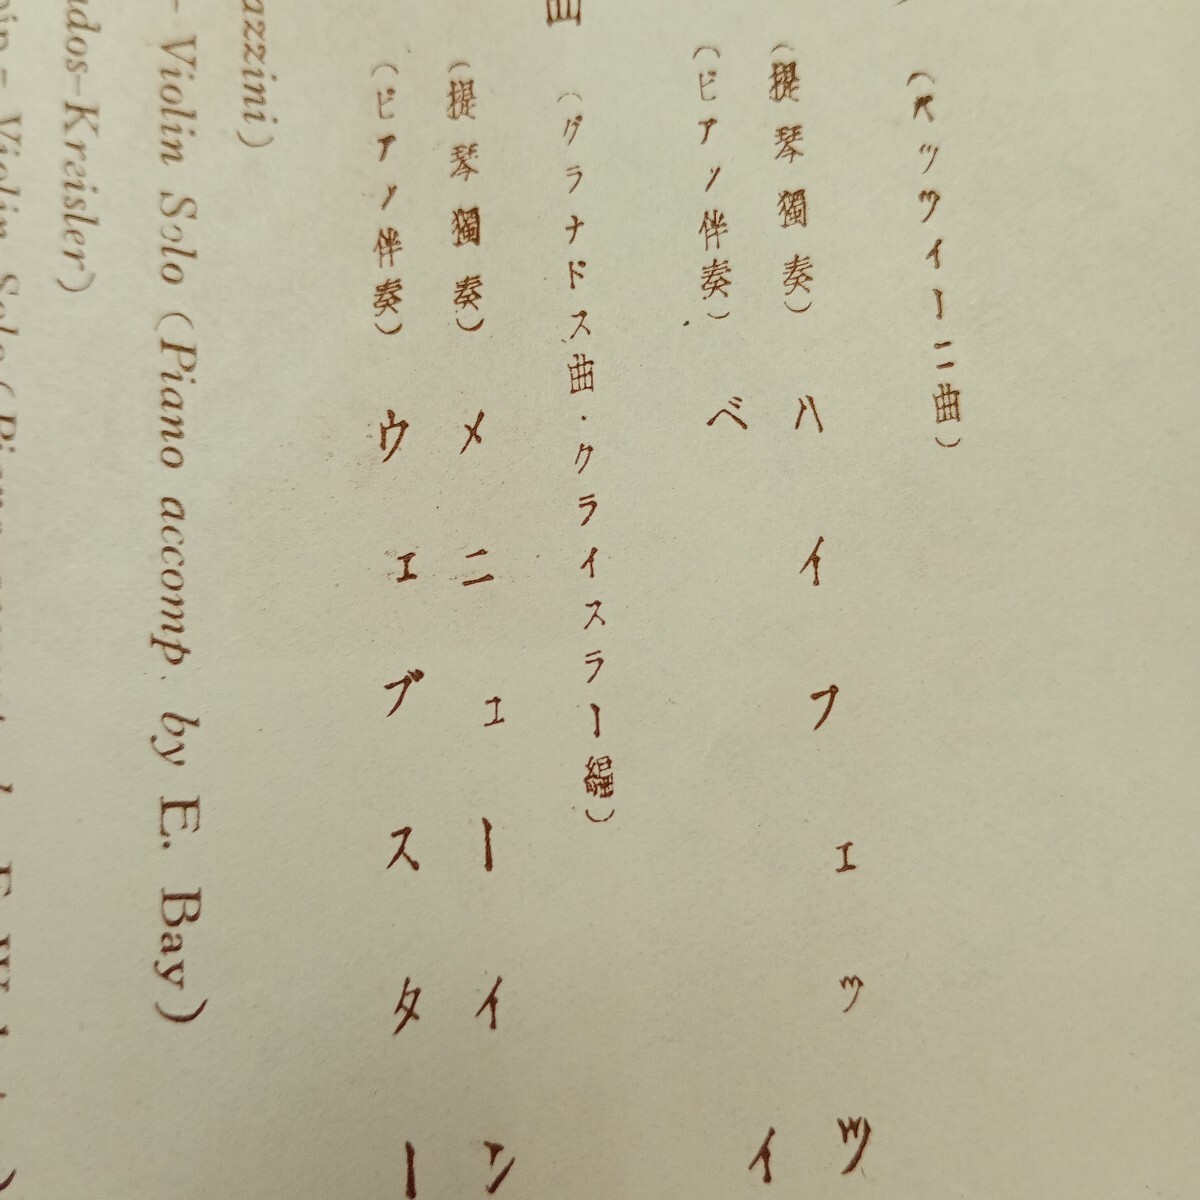 (バッツィーニ曲)
(提琴獨奏) ハイフェッツ
(ピアノ伴奏) ベイ
曲 (グラナドス曲・クライスラー編)
(提琴獨奏) メニューイン
(ピアノ伴奏) ウェブスター
azzini)
– Violin Solo (Piano accomp by E. Bay)
ados–Kreisler)
– Violin Solo (Piano